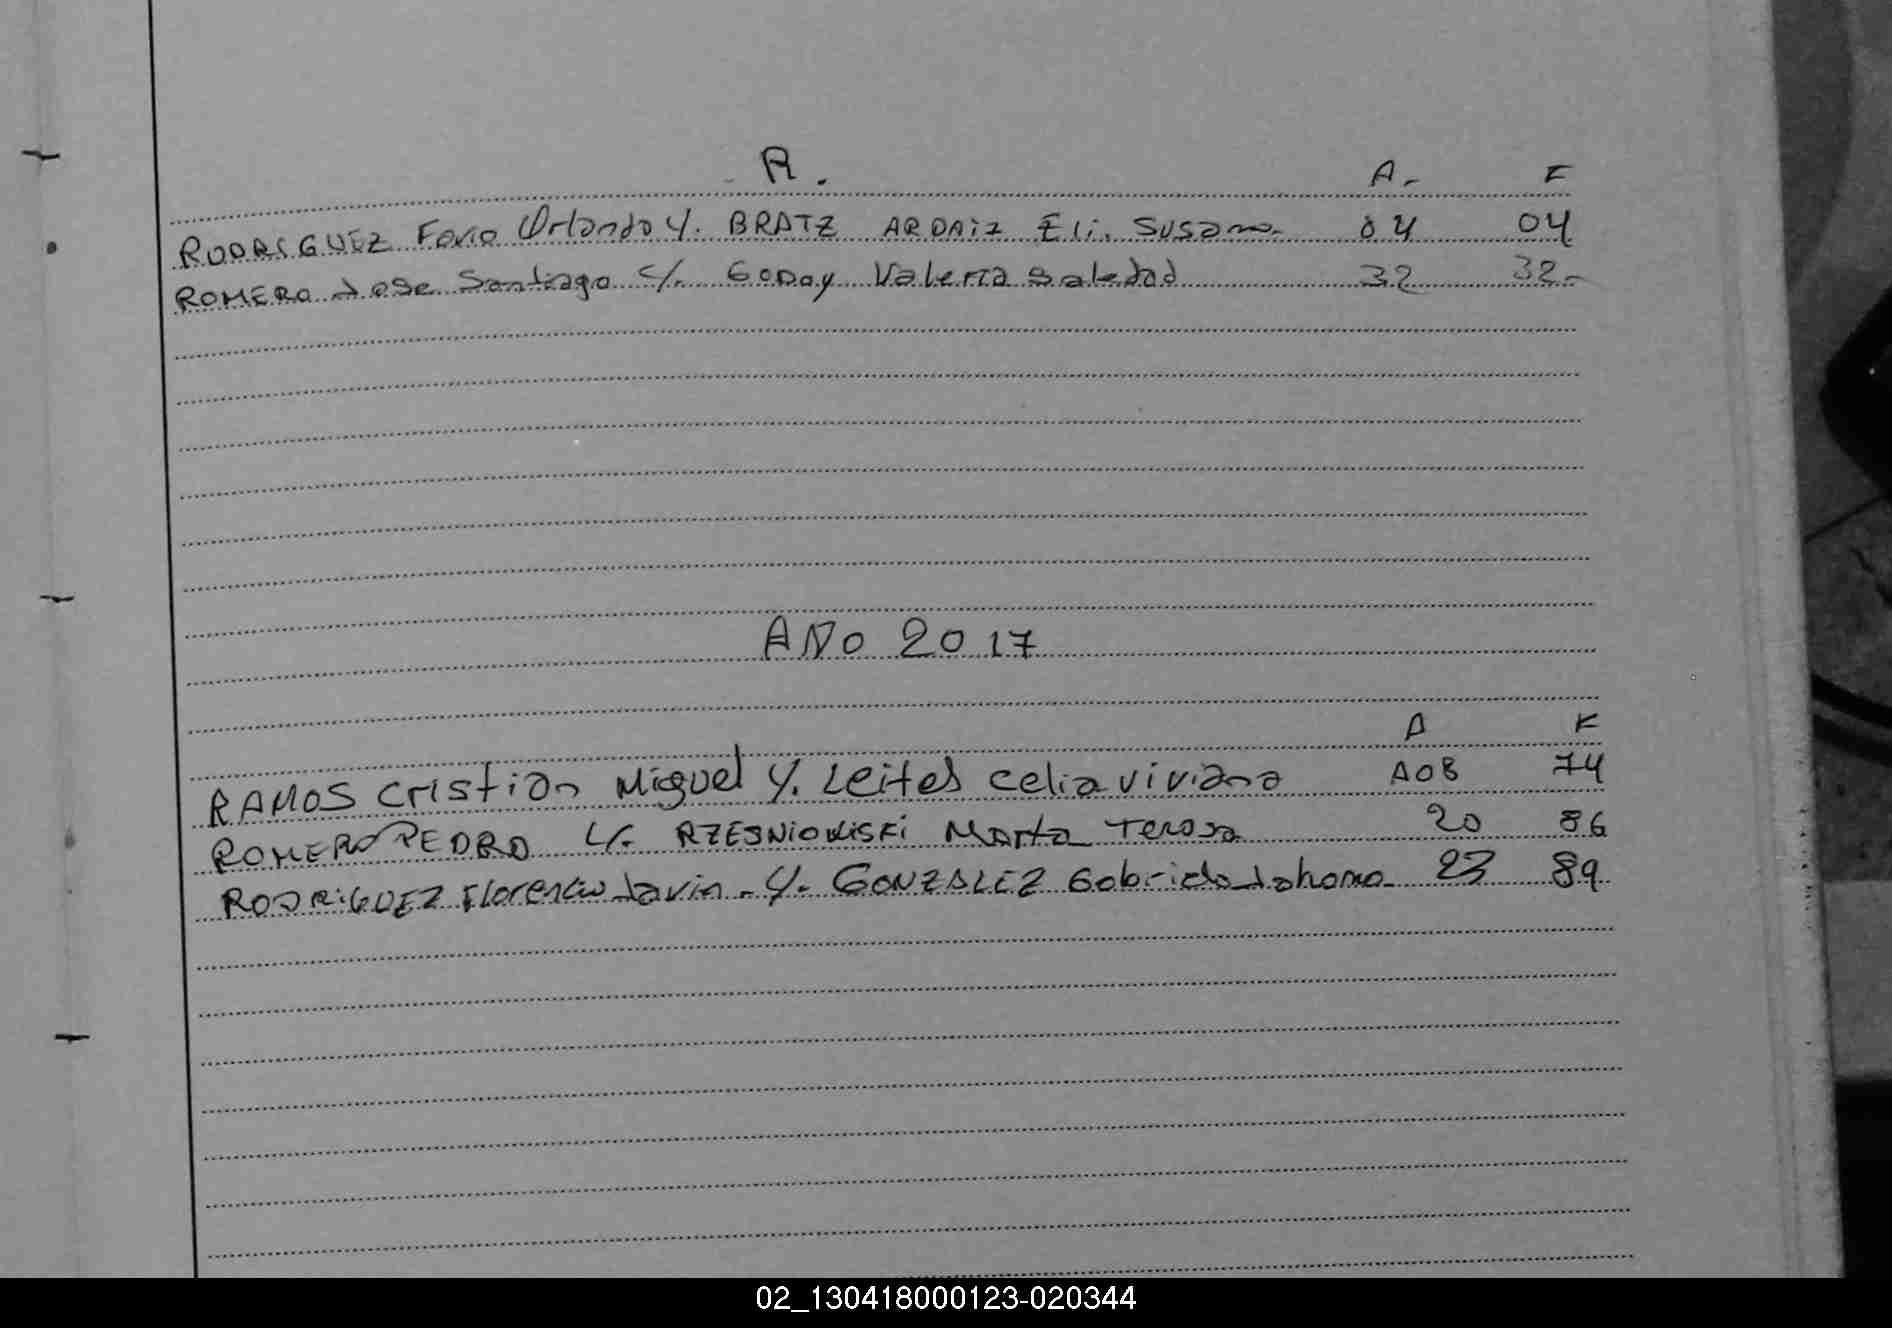 R.
A- F
RODRIGUEZ Favio Orlando Y. BRATZ ARDAIZ Eli. Susana- 04 04
ROMERO Jose Santiago C/. GODOY Valeria Soledad 32 32-
AÑO 2017
A F
RAMOS Cristian Miguel Y. Leites Celia Viviana A08 74
ROMERO PEDRO C/. RZESNIOWISKI Marta Teresa 20 86
RODRIGUEZ Florencio Javier - Y. GONZALEZ Gabriela Johana 23 89
02_130418000123-020344